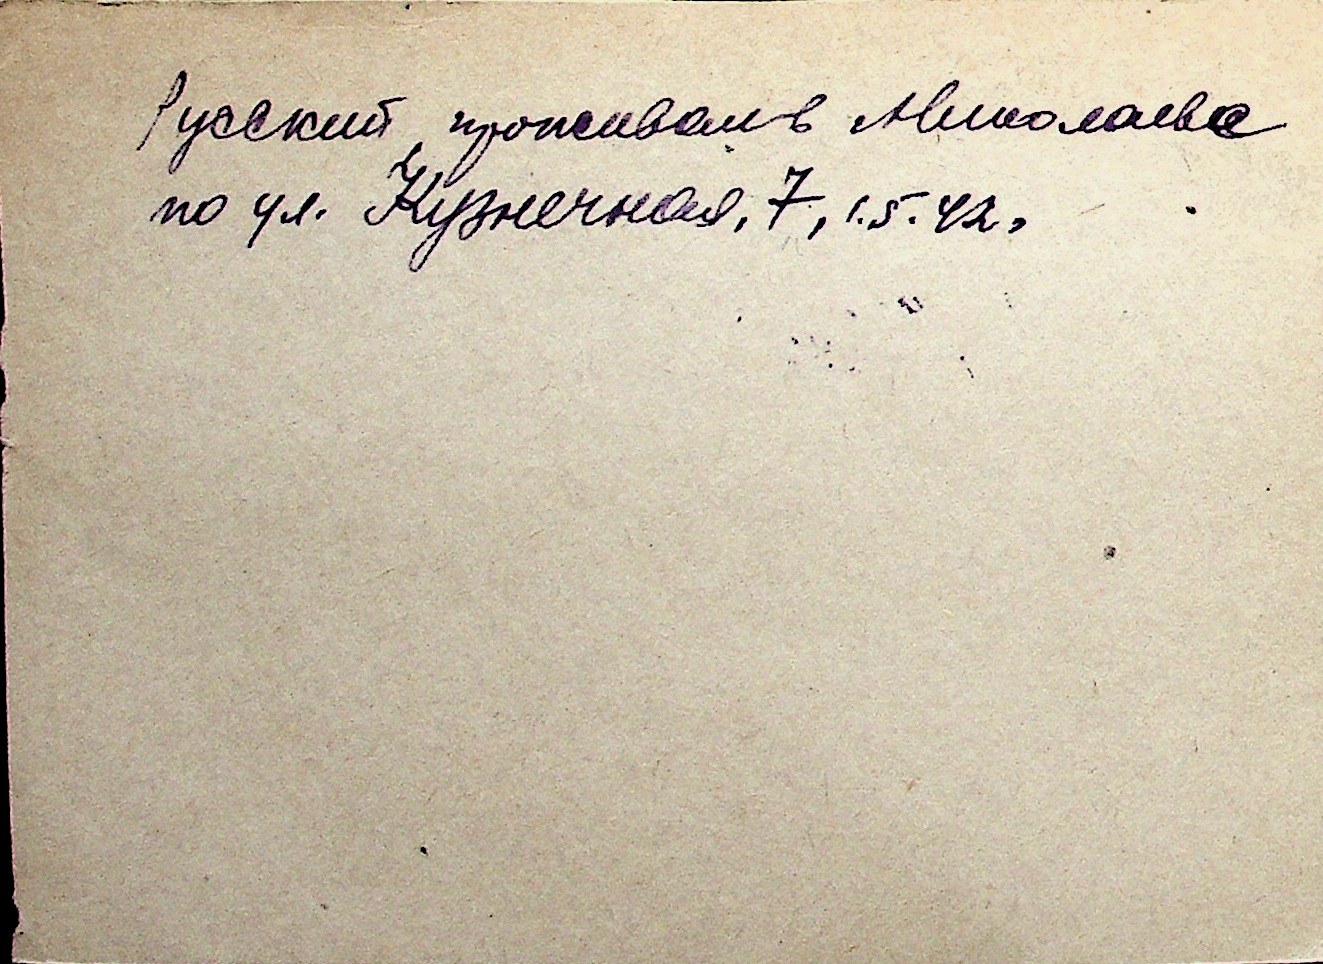 Русский проживал в Николаеве
по ул. Кузнечная, 7, 1.5.42,